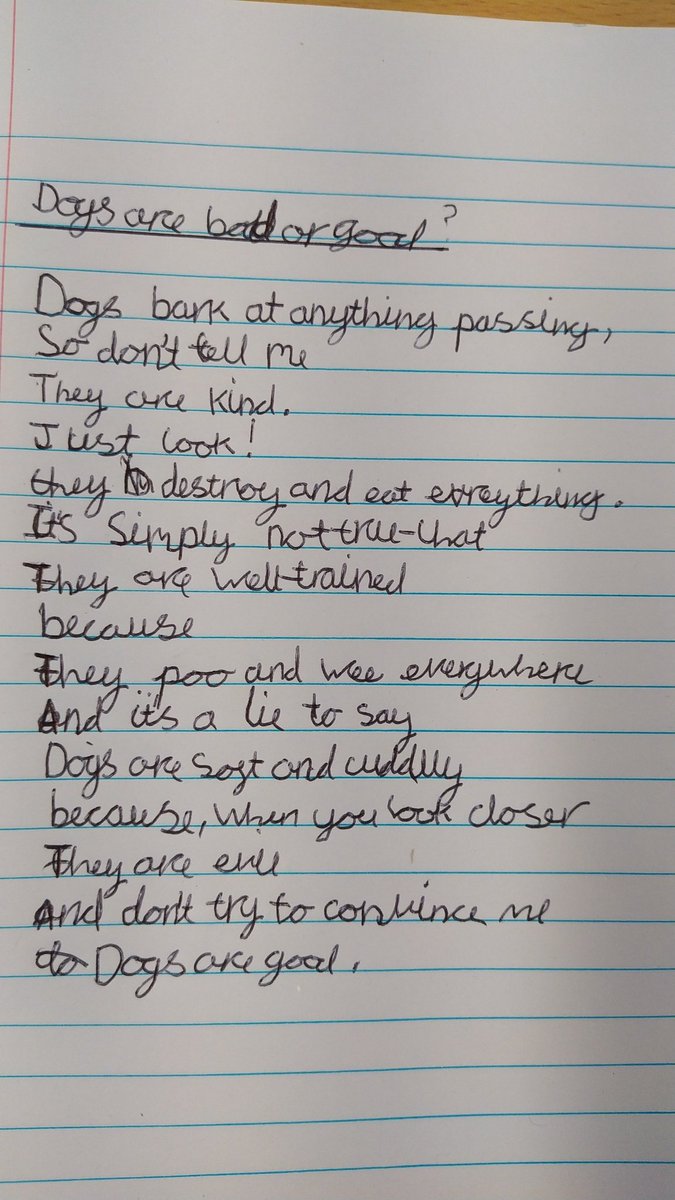 Dogs are bad or good?
Dogs bark at anything passing,
So don't tell me
They are kind.
Just look!
they destroy and eat evreything.
It's simply not true that
They are well-trained
because
They poo and wee everywhere
And it's a lie to say
Dogs are soft and cuddly
because, when you look closer
They are evil
And don't try to convince me
Dogs are good.